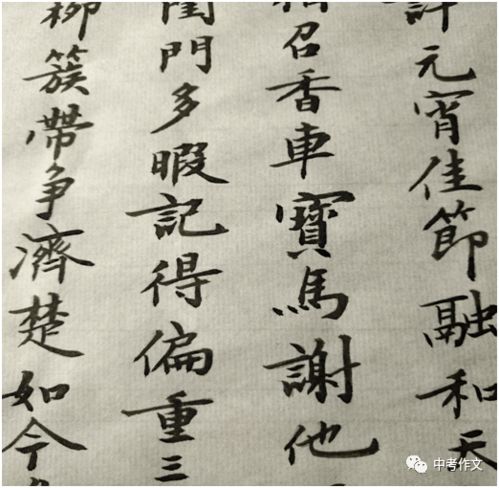 許元宵佳節融和天
相召香車寶馬謝他
閨門多暇記得偏重三
柳簇帶争濟楚如今
中考作文